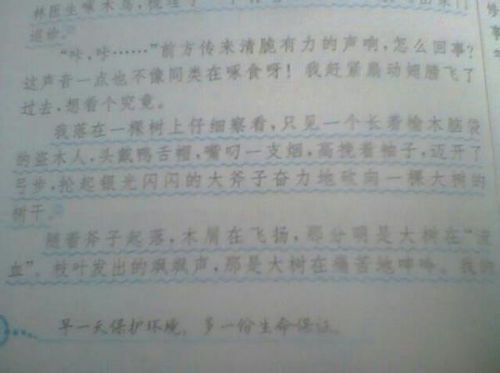 林医生啄木鸟,
巡诊。
“咔,咔……”前方传来清脆有力的声响,怎么回事?
这声音一点也不像同类在啄食呀!我赶紧扇动翅膀飞了
过去,想看个究竟。
我落在一棵树上仔细察看,只见一个长着榆木脑袋
的盗木人,头戴鸭舌帽,嘴叼一支烟,高挽着袖子,迈开了
弓步,抡起银光闪闪的大斧子奋力地砍向一棵大树的
树干。
随着斧子起落,木屑在飞扬,那分明是大树在“流
血”。枝叶发出的飒飒声,那是大树在痛苦地呻吟。我
早一天保护环境,多一份生命保证。